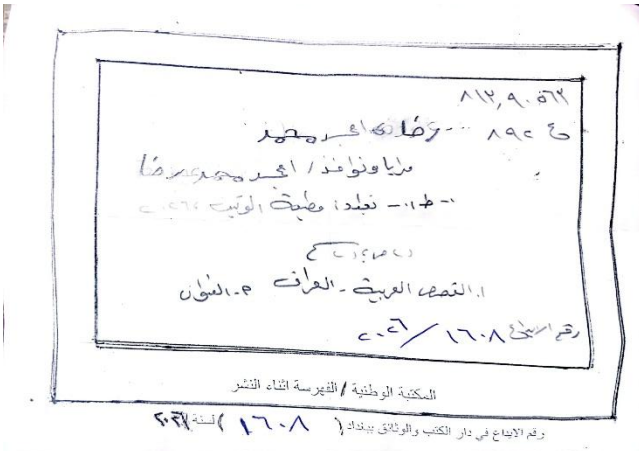 ٨١٣,٩٠٥٦٢
ع ٨٩٢ رضا، امجد محمد
مرايا ونوافذ / امجد محمد رضا
ط١.- بغداد: مطبعة ؛٢٠٢٦
ص؛ سم
١.القصص العربية - العراق م.العنوان
رقم الايداع ١٦٠٨ / ٢٠٢٦
المكتبة الوطنية / الفهرسة اثناء النشر
رقم الايداع في دار الكتب والوثائق ببغداد ( ١٦٠٨ ) لسنة ٢٠٢٦